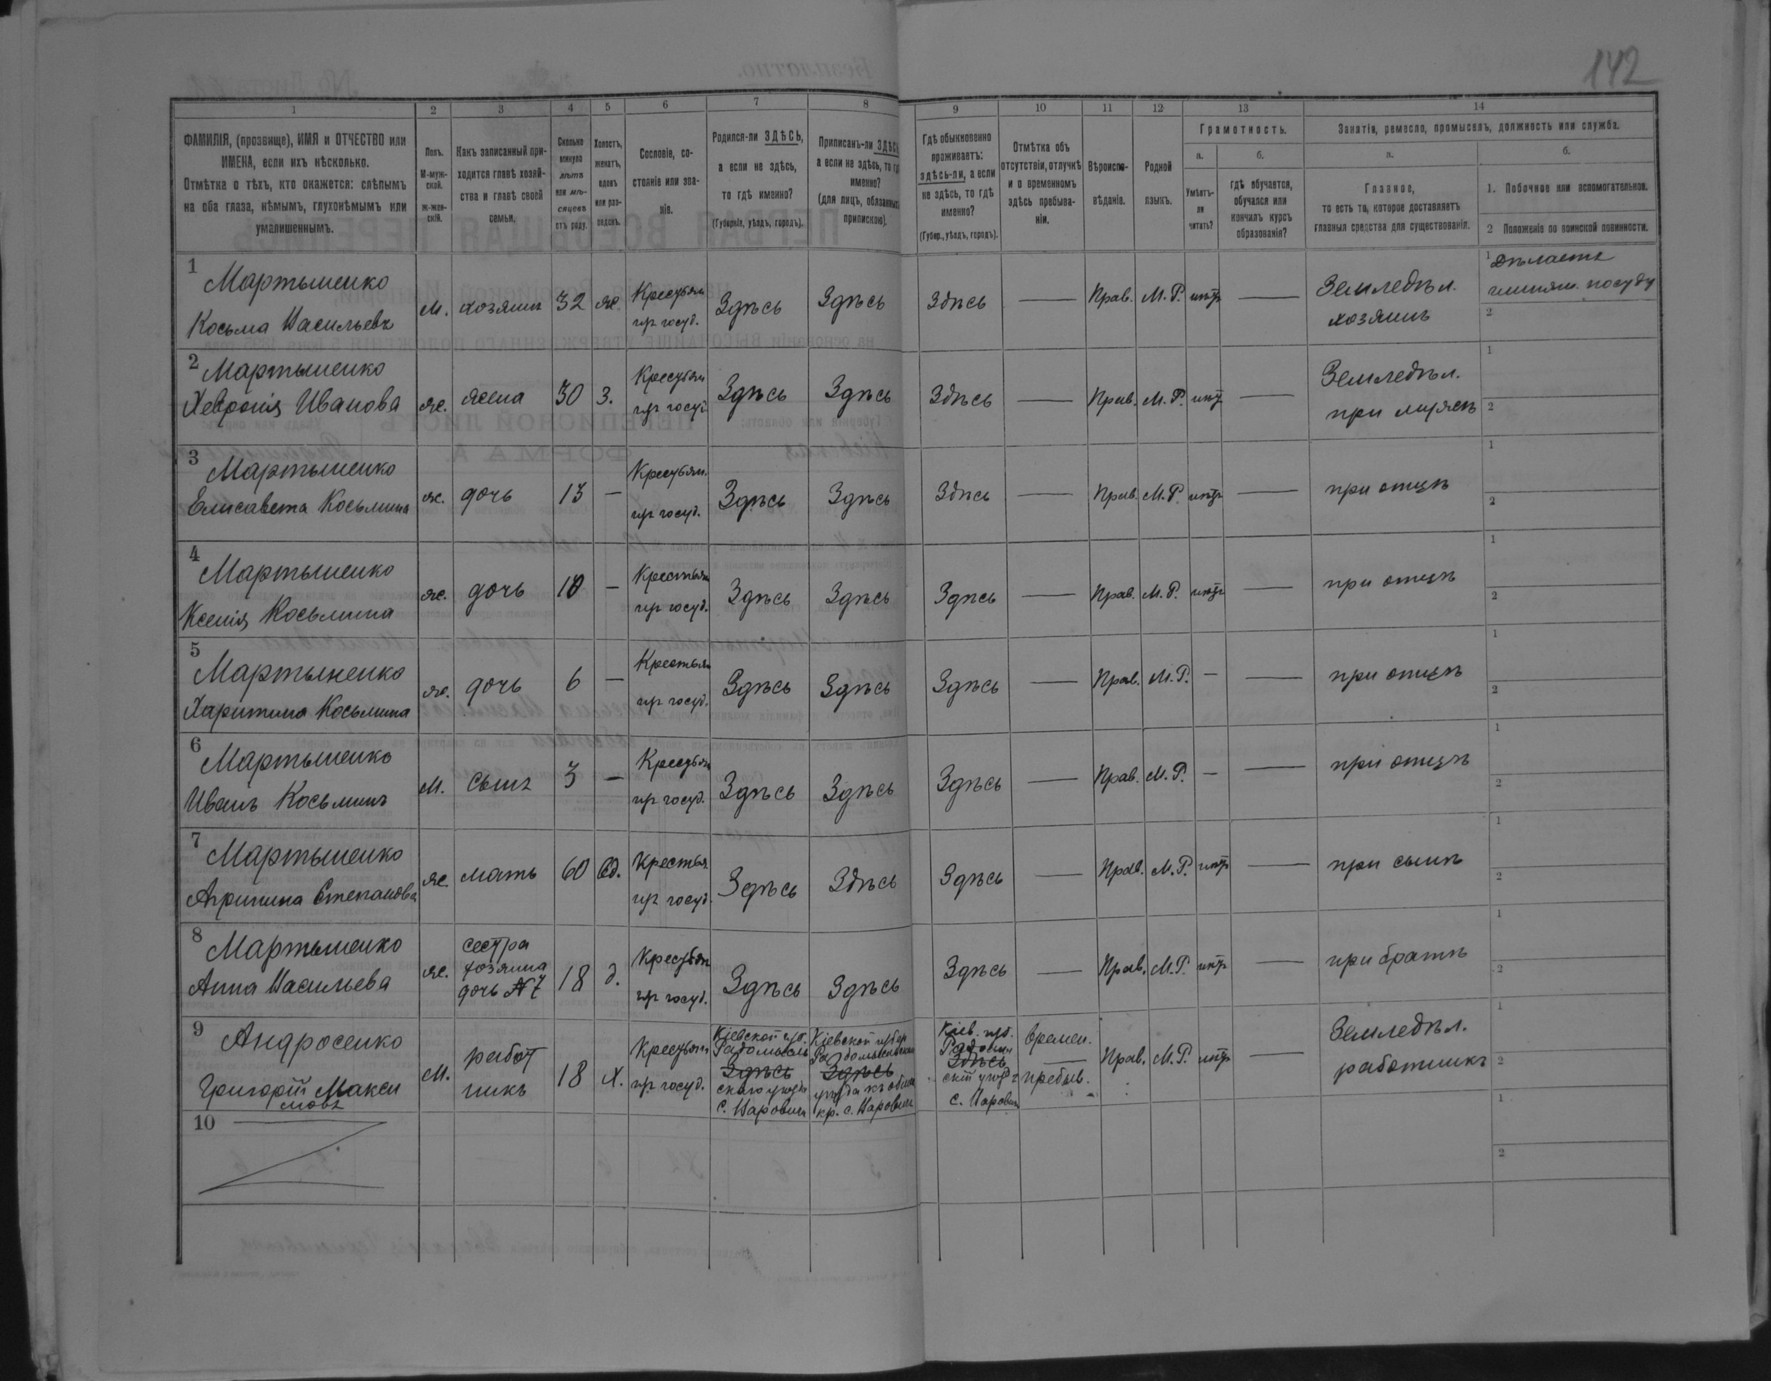 142
1 2 3 4 5 6 7 8 9 10 11 12 13 14
ФАМИЛІЯ, (прозвище), ИМЯ и ОТЧЕСТВО или ИМЕНА, если ихъ нѣсколько.
Отмѣтка о тѣхъ, кто окажется: слѣпымъ на оба глаза, нѣмымъ, глухонѣмымъ или умалишеннымъ.
Полъ. М-мужской. ж-женскій.
Какъ записанный приходится главѣ хозяйства и главѣ своей семьи.
Сколько минуло лѣтъ или мѣсяцевъ отъ роду.
Холостъ, женатъ, вдовъ или разведенъ.
Сословіе, состояніе или званіе.
Родился-ли ЗДѢСЬ, а если не здѣсь, то гдѣ именно?
(Губернія, уѣздъ, городъ).
Приписанъ-ли ЗДѢСЬ, а если не здѣсь, то гдѣ именно?
(для лицъ, обязанныхъ припискою).
Гдѣ обыкновенно проживаетъ: здѣсь-ли, а если не здѣсь, то гдѣ именно?
(Губер., уѣздъ, городъ).
Отмѣтка объ отсутствіи, отлучкѣ и о временномъ здѣсь пребываніи.
Вѣроисповѣданіе.
Родной языкъ.
Грамотность.
а. Умѣетъ-ли читать?
б. гдѣ обучается, обучался или кончилъ курсъ образованія?
Занятіе, ремесло, промыселъ, должность или служба.
а. Главное, то есть то, которое доставляетъ главныя средства для существованія.
б. 1. Побочное или вспомогательное.
2 Положеніе по воинской повинности.
1 Мартыненко
Косьма Васильевъ м. хозяинъ 32 ж. Крестьян. изъ госуд. Здѣсь Здѣсь Здѣсь — Прав. М.Р. нѣтъ — Земледѣл. хозяинъ 1 дѣлаетъ глинян. посуду
2
2 Мартыненко
Хевронія Иванова ж. жена 30 з. Крестьян. изъ госуд. Здѣсь Здѣсь Здѣсь — Прав. М.Р. нѣтъ — Земледѣл. при мужѣ 1
2
3 Мартыненко
Елисавета Косьмина ж. дочь 13 — Крестьян. изъ госуд. Здѣсь Здѣсь Здѣсь — Прав. М.Р. нѣтъ — при отцѣ 1
2
4 Мартыненко
Ксенія Косьмина ж. дочь 10 — Крестьян. изъ госуд. Здѣсь Здѣсь Здѣсь — Прав. М.Р. нѣтъ — при отцѣ 1
2
5 Мартыненко
Харитина Косьмина ж. дочь 6 — Крестьян. изъ госуд. Здѣсь Здѣсь Здѣсь — Прав. М.Р. — — при отцѣ 1
2
6 Мартыненко
Иванъ Косьминъ м. сынъ 3 — Крестьян. изъ госуд. Здѣсь Здѣсь Здѣсь — Прав. М.Р. — — при отцѣ 1
2
7 Мартыненко
Агрипина Степанова ж. мать 60 вд. Крестья изъ госуд. Здѣсь Здѣсь Здѣсь — Прав. М.Р. нѣтъ — при сынѣ 1
2
8 Мартыненко
Анна Васильева ж. сестра хозяина дочь №7 18 д. Крестьян изъ госуд. Здѣсь Здѣсь Здѣсь — Прав. М.Р. нѣтъ — при братѣ 1
2
9 Андросенко
Григорій Макси
мовъ м. работ
никъ 18 х. Крестьян изъ госуд. Кіевской губ. Радомысль Здѣсь скаго уѣзда с. Маровичи Кіевской губер Радомысльскаго Здѣсь уѣзда къ общ. кр. с. Маровичи Кіев. губ. Радомысль Здѣсь скій уѣздъ с. Маровичи Времен. — пребыв. Прав. М.Р. нѣтъ — Земледѣл. работникъ 1
2
10 1
2